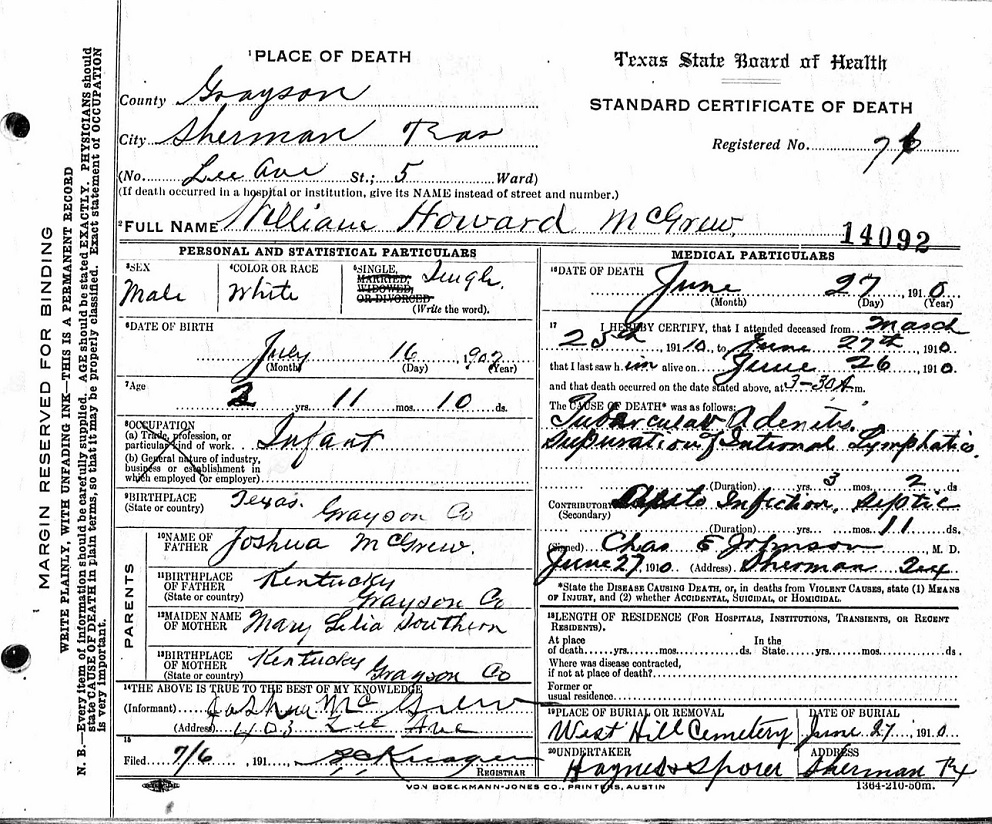 MARGIN RESERVED FOR BINDING
WRITE PLAINLY, WITH UNFADING INK—THIS IS A PERMANENT RECORD
N. B.—Every item of information should be carefully supplied. AGE should be stated EXACTLY. PHYSICIANS should
state CAUSE OF DEATH in plain terms, so that it may be properly classified. Exact statement of OCCUPATION
is very important.
1 PLACE OF DEATH
County Grayson
City Sherman Texas
(No. Lee Ave St.; 5 Ward)
(If death occurred in a hospital or institution, give its NAME instead of street and number.)
Texas State Board of Health
STANDARD CERTIFICATE OF DEATH
Registered No. 76
2 FULL NAME William Howard McGrew
14092
PERSONAL AND STATISTICAL PARTICULARS
3 SEX
Male
4 COLOR OR RACE
White
5 SINGLE,
MARRIED,
WIDOWED,
OR DIVORCED
Single.
(Write the word).
6 DATE OF BIRTH
July 16 1907
(Month) (Day) (Year)
7 Age
2 yrs. 11 mos. 10 ds.
8 OCCUPATION
(a) Trade, profession, or
particular kind of work. Infant
(b) General nature of industry,
business or establishment in
which employed (or employer)
9 BIRTHPLACE
(State or country) Texas. Grayson Co
PARENTS
10 NAME OF
FATHER Joshua McGrew.
11 BIRTHPLACE
OF FATHER
(State or country) Kentucky Grayson Co
12 MAIDEN NAME
OF MOTHER Mary Lilia Southern
13 BIRTHPLACE
OF MOTHER
(State or country) Kentucky Grayson Co
14 THE ABOVE IS TRUE TO THE BEST OF MY KNOWLEDGE
(Informant) Joshua McGrew
(Address) 403 Lee Ave
15
Filed 7/6, 191
REGISTRAR
MEDICAL PARTICULARS
16 DATE OF DEATH
June 27, 1910
(Month) (Day) (Year)
17 I HEREBY CERTIFY, that I attended deceased from March
25th, 1910, to June 27th, 1910
that I last saw him alive on June 26, 1910.
and that death occurred on the date stated above, at 3-30 A m.
The CAUSE OF DEATH* was as follows:
Tubercular Adenitis.
Supuration of Intional Lymphatic.
(Duration) yrs. 3 mos. 2 ds
CONTRIBUTORY Infection, Septic
(Secondary)
(Duration) yrs. mos. 11 ds.
(Signed) Chas E Johnson M. D.
June 27 1910 (Address) Sherman Tex
*State the DISEASE CAUSING DEATH, or, in deaths from VIOLENT CAUSES, state (1) MEANS
OF INJURY, and (2) whether ACCIDENTAL, SUICIDAL, or HOMICIDAL.
18 LENGTH OF RESIDENCE (FOR HOSPITALS, INSTITUTIONS, TRANSIENTS, OR RECENT
RESIDENTS).
At place In the
of death yrs. mos. ds. State yrs. mos. ds.
Where was disease contracted,
if not at place of death?
Former or
usual residence
19 PLACE OF BURIAL OR REMOVAL
West Hill Cemetery
DATE OF BURIAL
June 27, 1910
20 UNDERTAKER
Haynes & Sporer
ADDRESS
Sherman Tx
VON BOECKMANN-JONES CO., PRINTERS, AUSTIN
1364-210-50m.